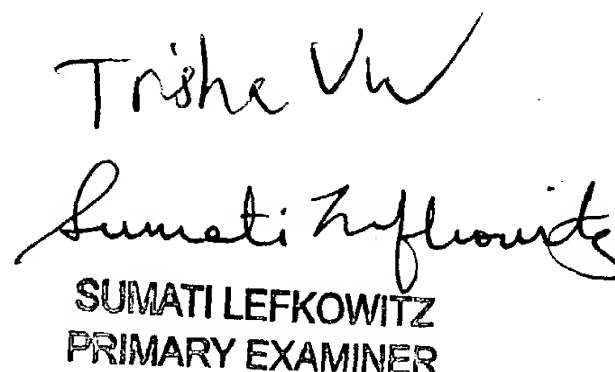 Trisha Vu
Sumati Lefkowitz
SUMATI LEFKOWITZ
PRIMARY EXAMINER